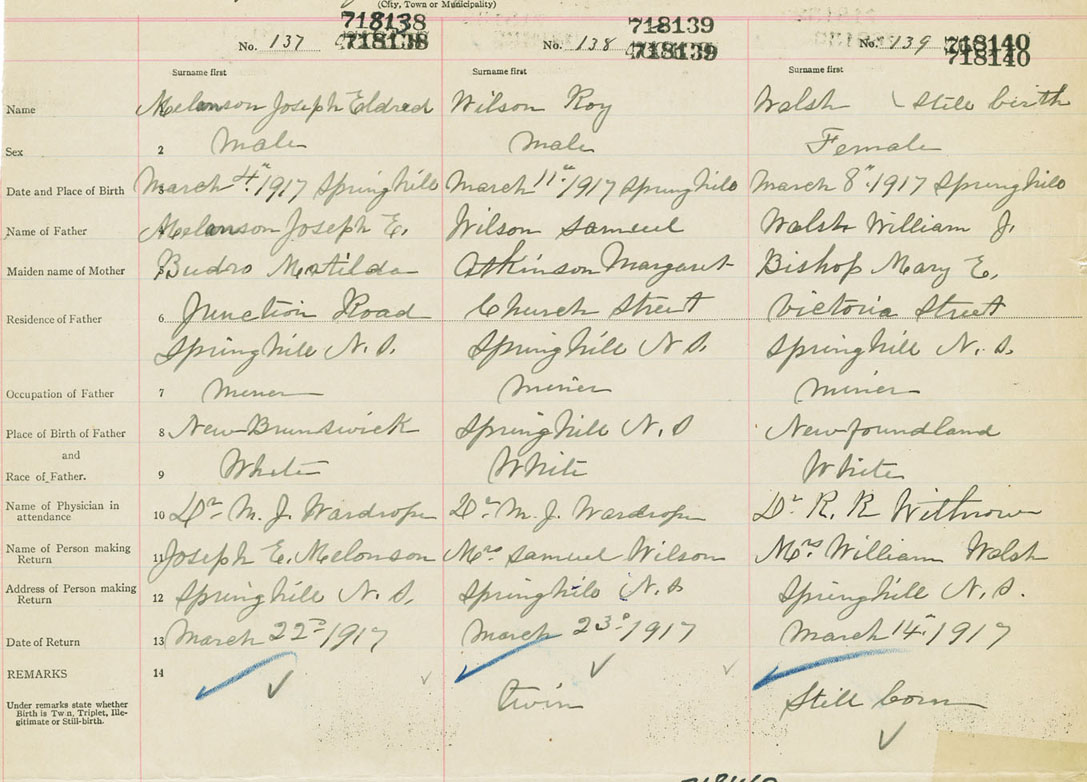 (City, Town or Municipality)
718138 718139 718140
No. 137 718138 No. 138 718139 No. 139 718140
Surname first Surname first Surname first
Name Melanson Joseph Eldred Wilson Roy Walsh (Still birth
Sex 2 Male Male Female
Date and Place of Birth 3 March 4th 1917 Springhill March 11th 1917 Springhill March 8th 1917 Springhill
Name of Father 4 Melanson Joseph E. Wilson Samuel Walsh William J.
Maiden name of Mother 5 Budro Matilda Atkinson Margaret Bishop Mary E.
Residence of Father 6 Junction Road Church Street Victoria Street
Springhill N.S. Springhill N S. Springhill N. S.
Occupation of Father 7 Miner Miner Miner
Place of Birth of Father 8 New Brunswick Springhill N.S Newfoundland
and
Race of Father. 9 White White White
Name of Physician in
attendance 10 Dr M. J. Wardrope Dr. M. J. Wardrope Dr R. R Withrow
Name of Person making
Return 11 Joseph E. Melonson Mrs Samuel Wilson Mrs William Walsh
Address of Person making
Return 12 Springhill N. S. Springhill N.S Springhill N.S.
Date of Return 13 March 22nd 1917 March 23d 1917 March 14th 1917
REMARKS 14
Under remarks state whether
Birth is Twin, Triplet, Ille-
gitimate or Still-birth.
Twin Still born